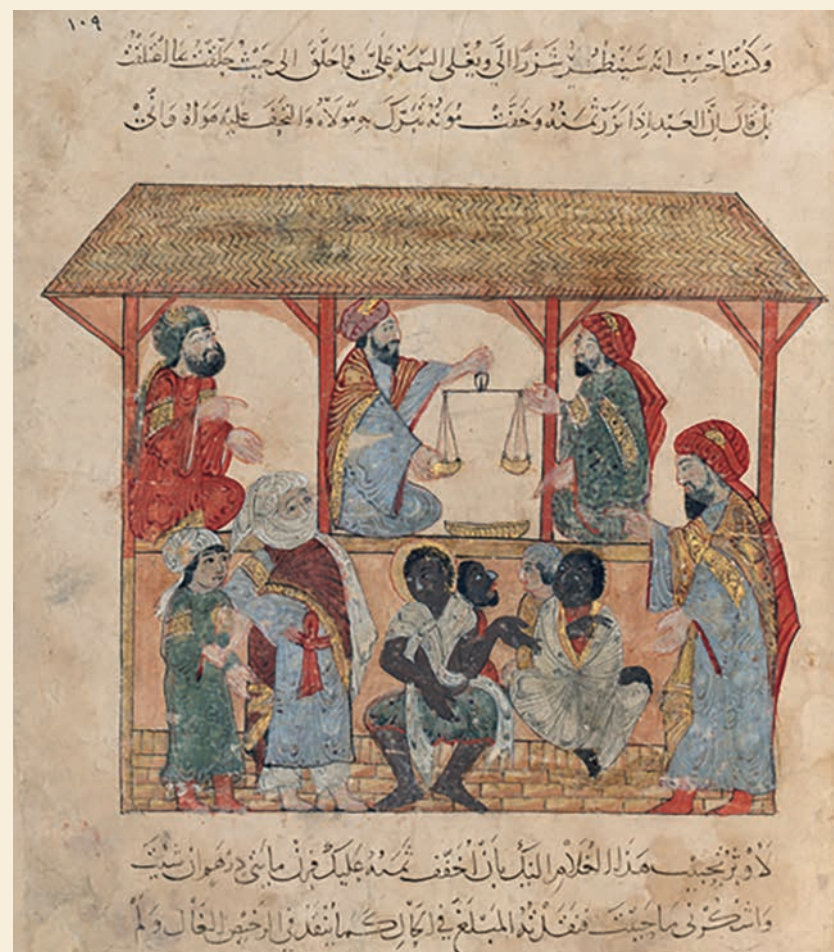 ١٠٩
وَكُنْتُ احْسِبُ انَّهُ سَيَنْظُرُ شَزَرًا الَيَّ وَيُغْلِي السِّيمَةَ عَلَيَّ فَمَا حَلَّقَ الى حَيْثُ حَلَّقْتُ
بَلْ قَالَ اِنَّ العَبْدَ اِذَا نَزُرَ ثَمَنُهُ وَخَفَّتْ مُونَهُ تَبَرَّكَ بِهِ مَوْلَاهُ وَالتَحَفَ عَلَيْهِ هَوَاهُ وَانِّي
لَاُوثِرُ تَحْبِيبَ هَذَا الغُلَامِ الَيْكَ بِأَنْ اُخَفِّفَ ثَمَنَهُ عَلَيْكَ فَزِنْ مَايتَى دِرْهَمٍ اِنْ شِيتَ
وَاشْكُرْ لِي مَا حَيِيتَ فَنَقَدْتُهُ المَبْلَغَ فِي الحَالِ كَمَا يُنْقَدُ فِي الرَّخِيصِ الغَالِ وَلَمْ